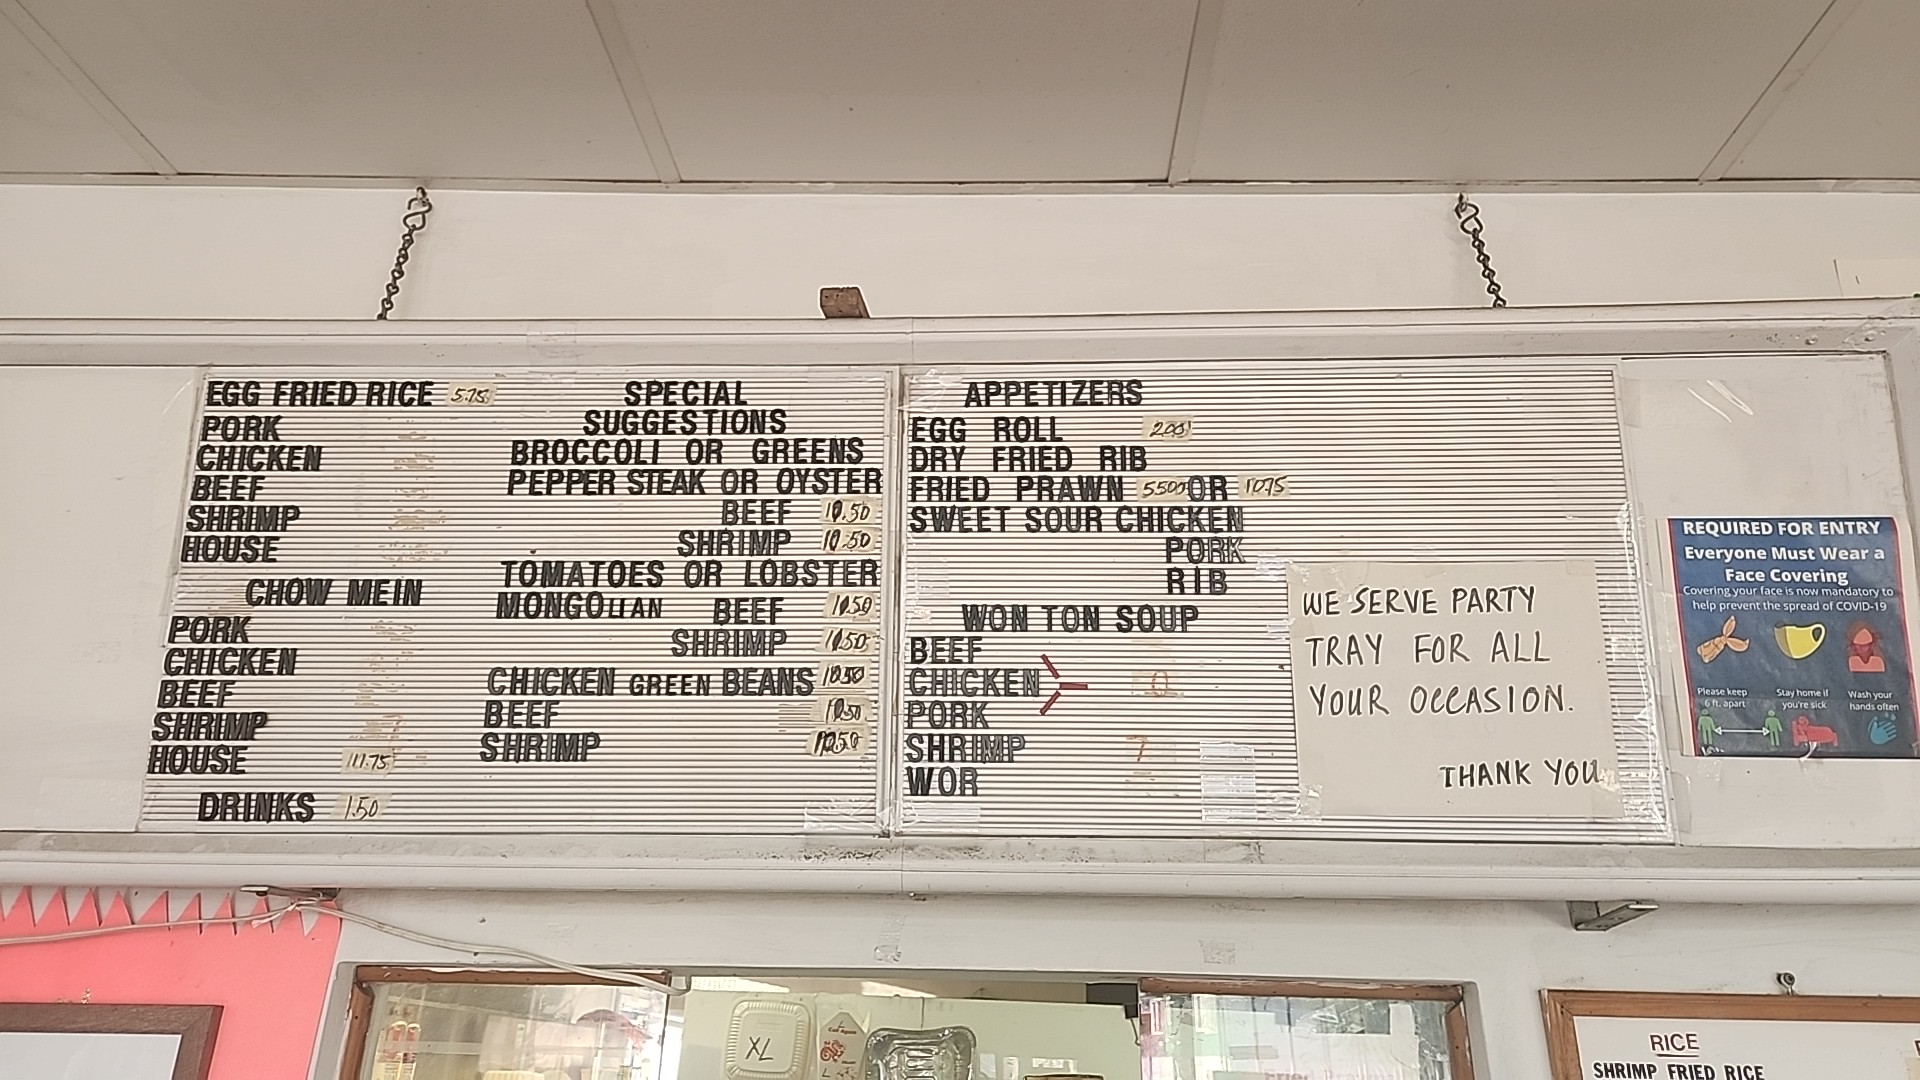 EGG FRIED RICE 5.75
PORK
CHICKEN
BEEF
SHRIMP
HOUSE
CHOW MEIN
PORK
CHICKEN
BEEF
SHRIMP
HOUSE
DRINKS 1.50
SPECIAL
SUGGESTIONS
BROCCOLI OR GREENS
PEPPER STEAK OR OYSTER
BEEF 10.50
SHRIMP 10.50
TOMATOES OR LOBSTER
MONGOLIAN BEEF 10.50
SHRIMP 10.50
CHICKEN GREEN BEANS 10.50
BEEF 10.50
SHRIMP 10.50
APPETIZERS
EGG ROLL 200
DRY FRIED RIB
FRIED PRAWN OR 10.75
SWEET SOUR CHICKEN
PORK
RIB
WON TON SOUP
BEEF
CHICKEN
PORK
SHRIMP
WOR
WE SERVE PARTY
TRAY FOR ALL
YOUR OCCASION.
THANK YOU
REQUIRED FOR ENTRY
Everyone Must Wear a
Face Covering
Covering your face is now mandatory to
help prevent the spread of COVID-19
Please keep
6 ft. apart
Stay home if
you're sick
Wash your
hands often
XL
RICE
SHRIMP FRIED RICE